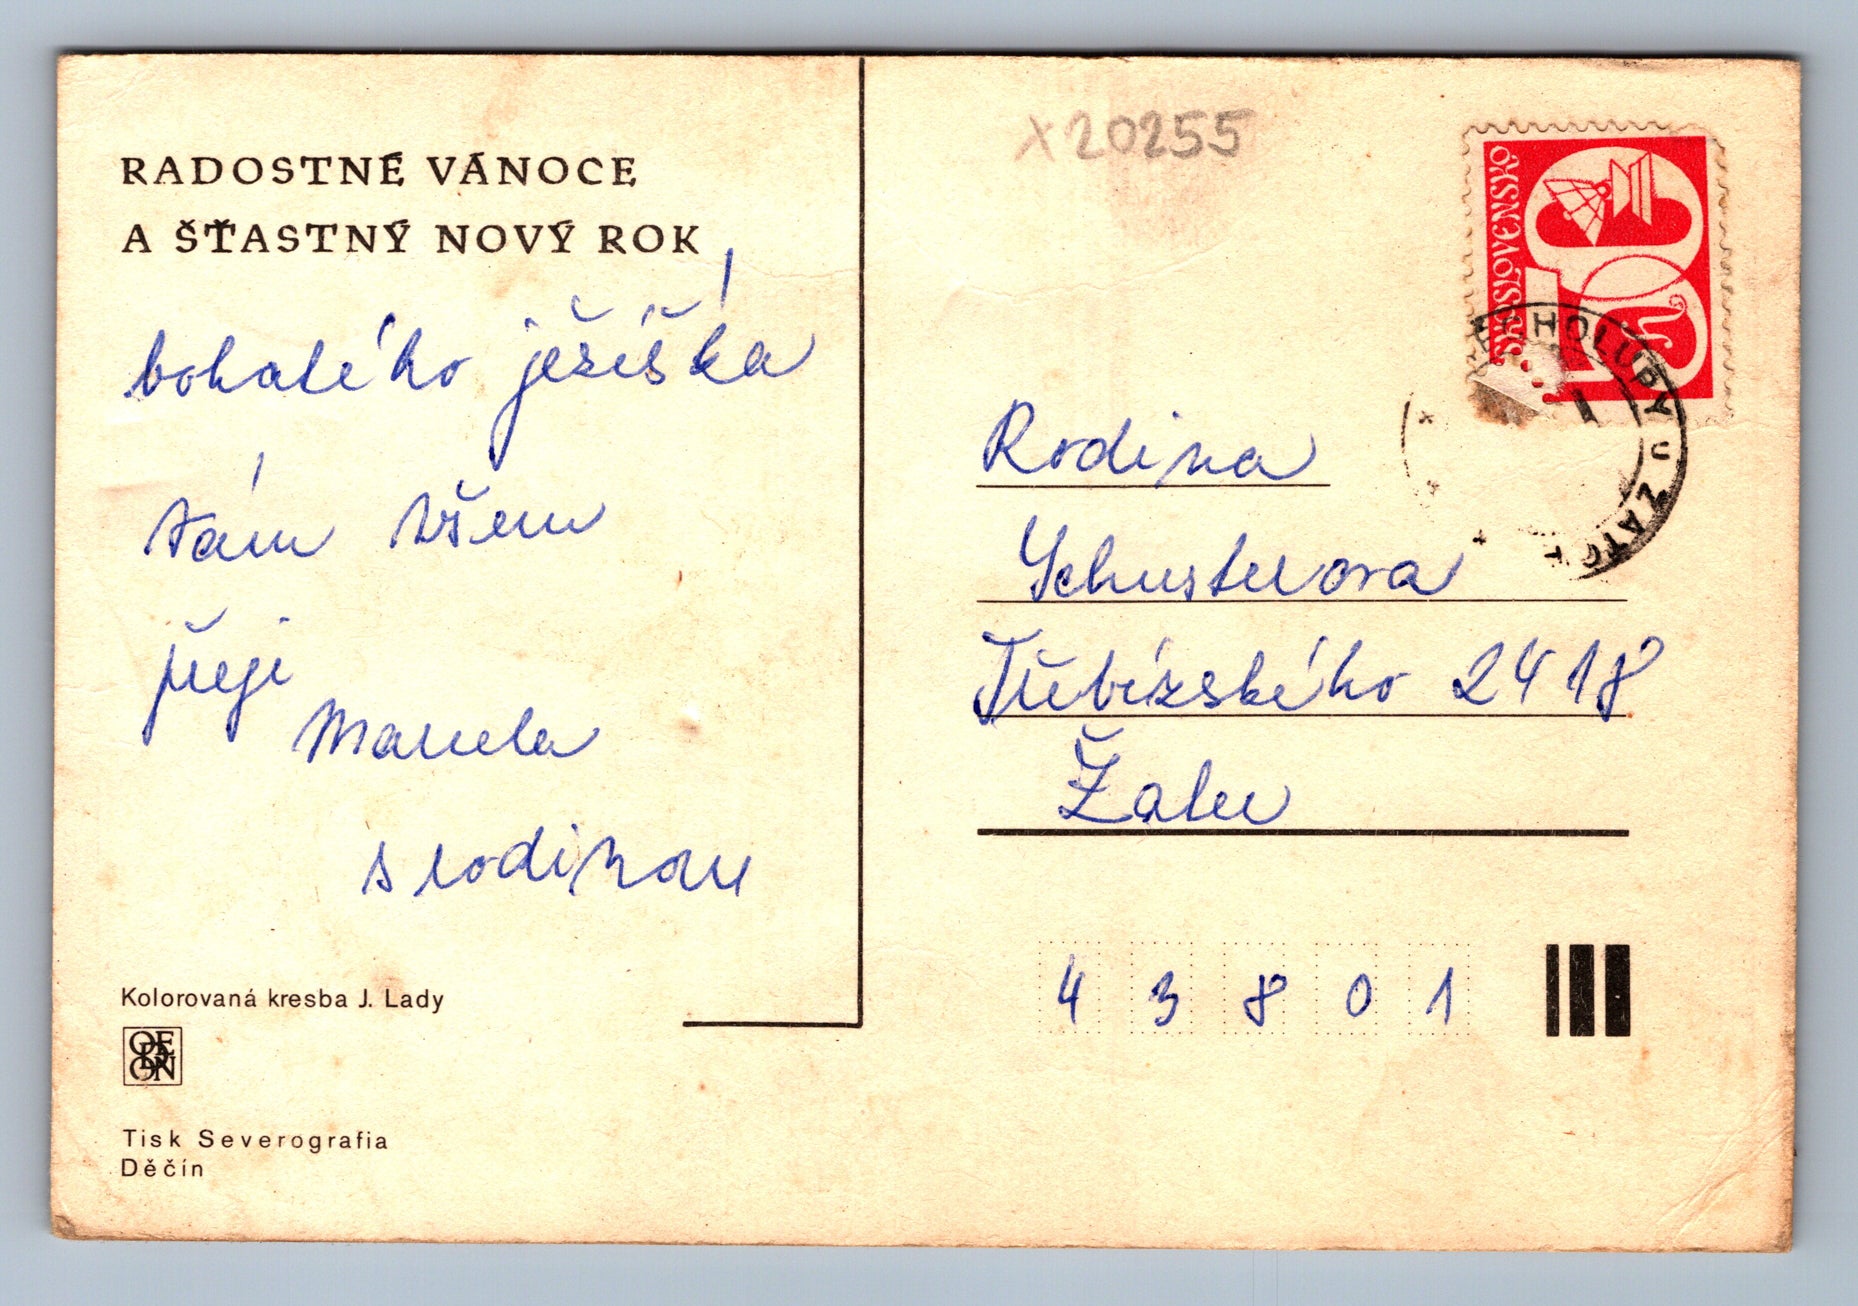 RADOSTNÉ VÁNOCE
A ŠŤASTNÝ NOVÝ ROK
bohatého ježíška
Vám všem
přeji
Marcela
s rodinou
Kolorovaná kresba J. Lady
ODEON
Tisk Severografia
Děčín
x20255
SKOSLOVENSKO
50
h
HOLUBY U ŽATC
Rodina
Schusterova
Třebízského 2418
Žatec
4 3 8 0 1